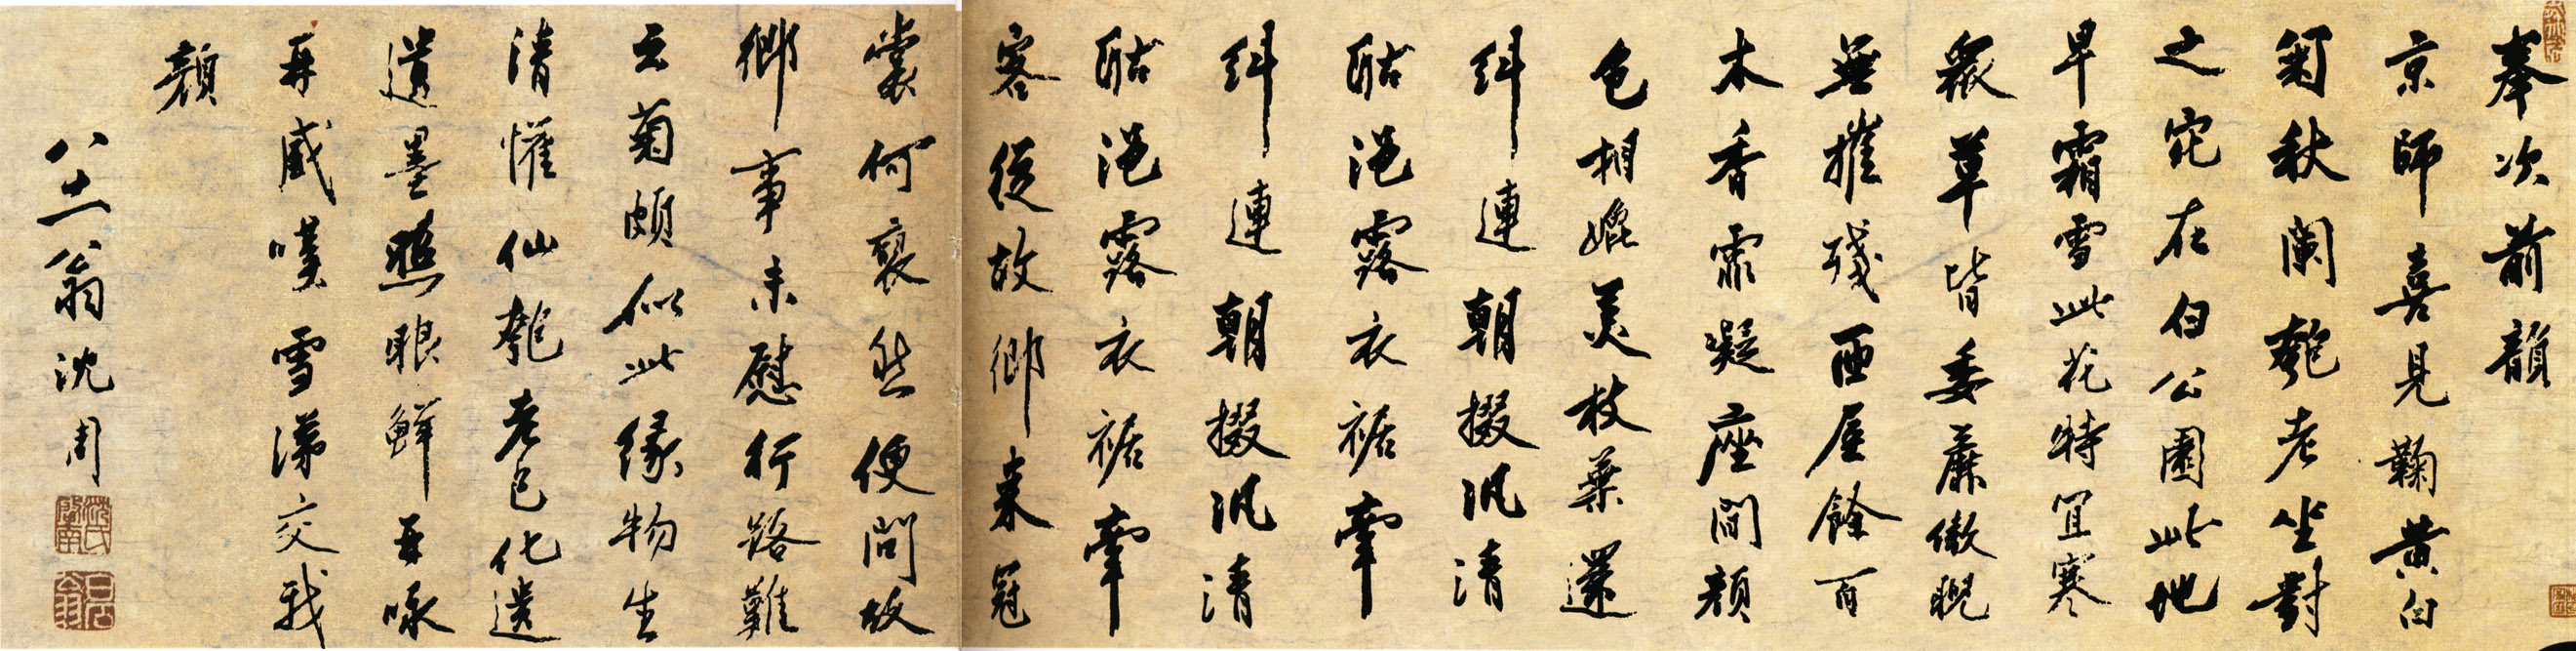 奉次前韻
京師喜見鞠黃白
菊秋闌匏老坐對
之在白公園此地
早霜雪此花特宜寒
衆草皆委靡傲睨
無摧殘西屋餘百
本香霏凝座間顏
色相媲美枝葉還
糾連朝掇汎清
酤浥露衣裾牽
糾連朝掇汎清
酤浥露衣裾牽
客從故鄉來冠
裳何襃然便問故
鄉事未慰行路難
云菊頗似此緣物生
清懽仙匏老已化遺
遺墨照眼鮮再咏
再感嘆雪涕交我
顏
八十二翁沈周
沈氏啓南
白石翁